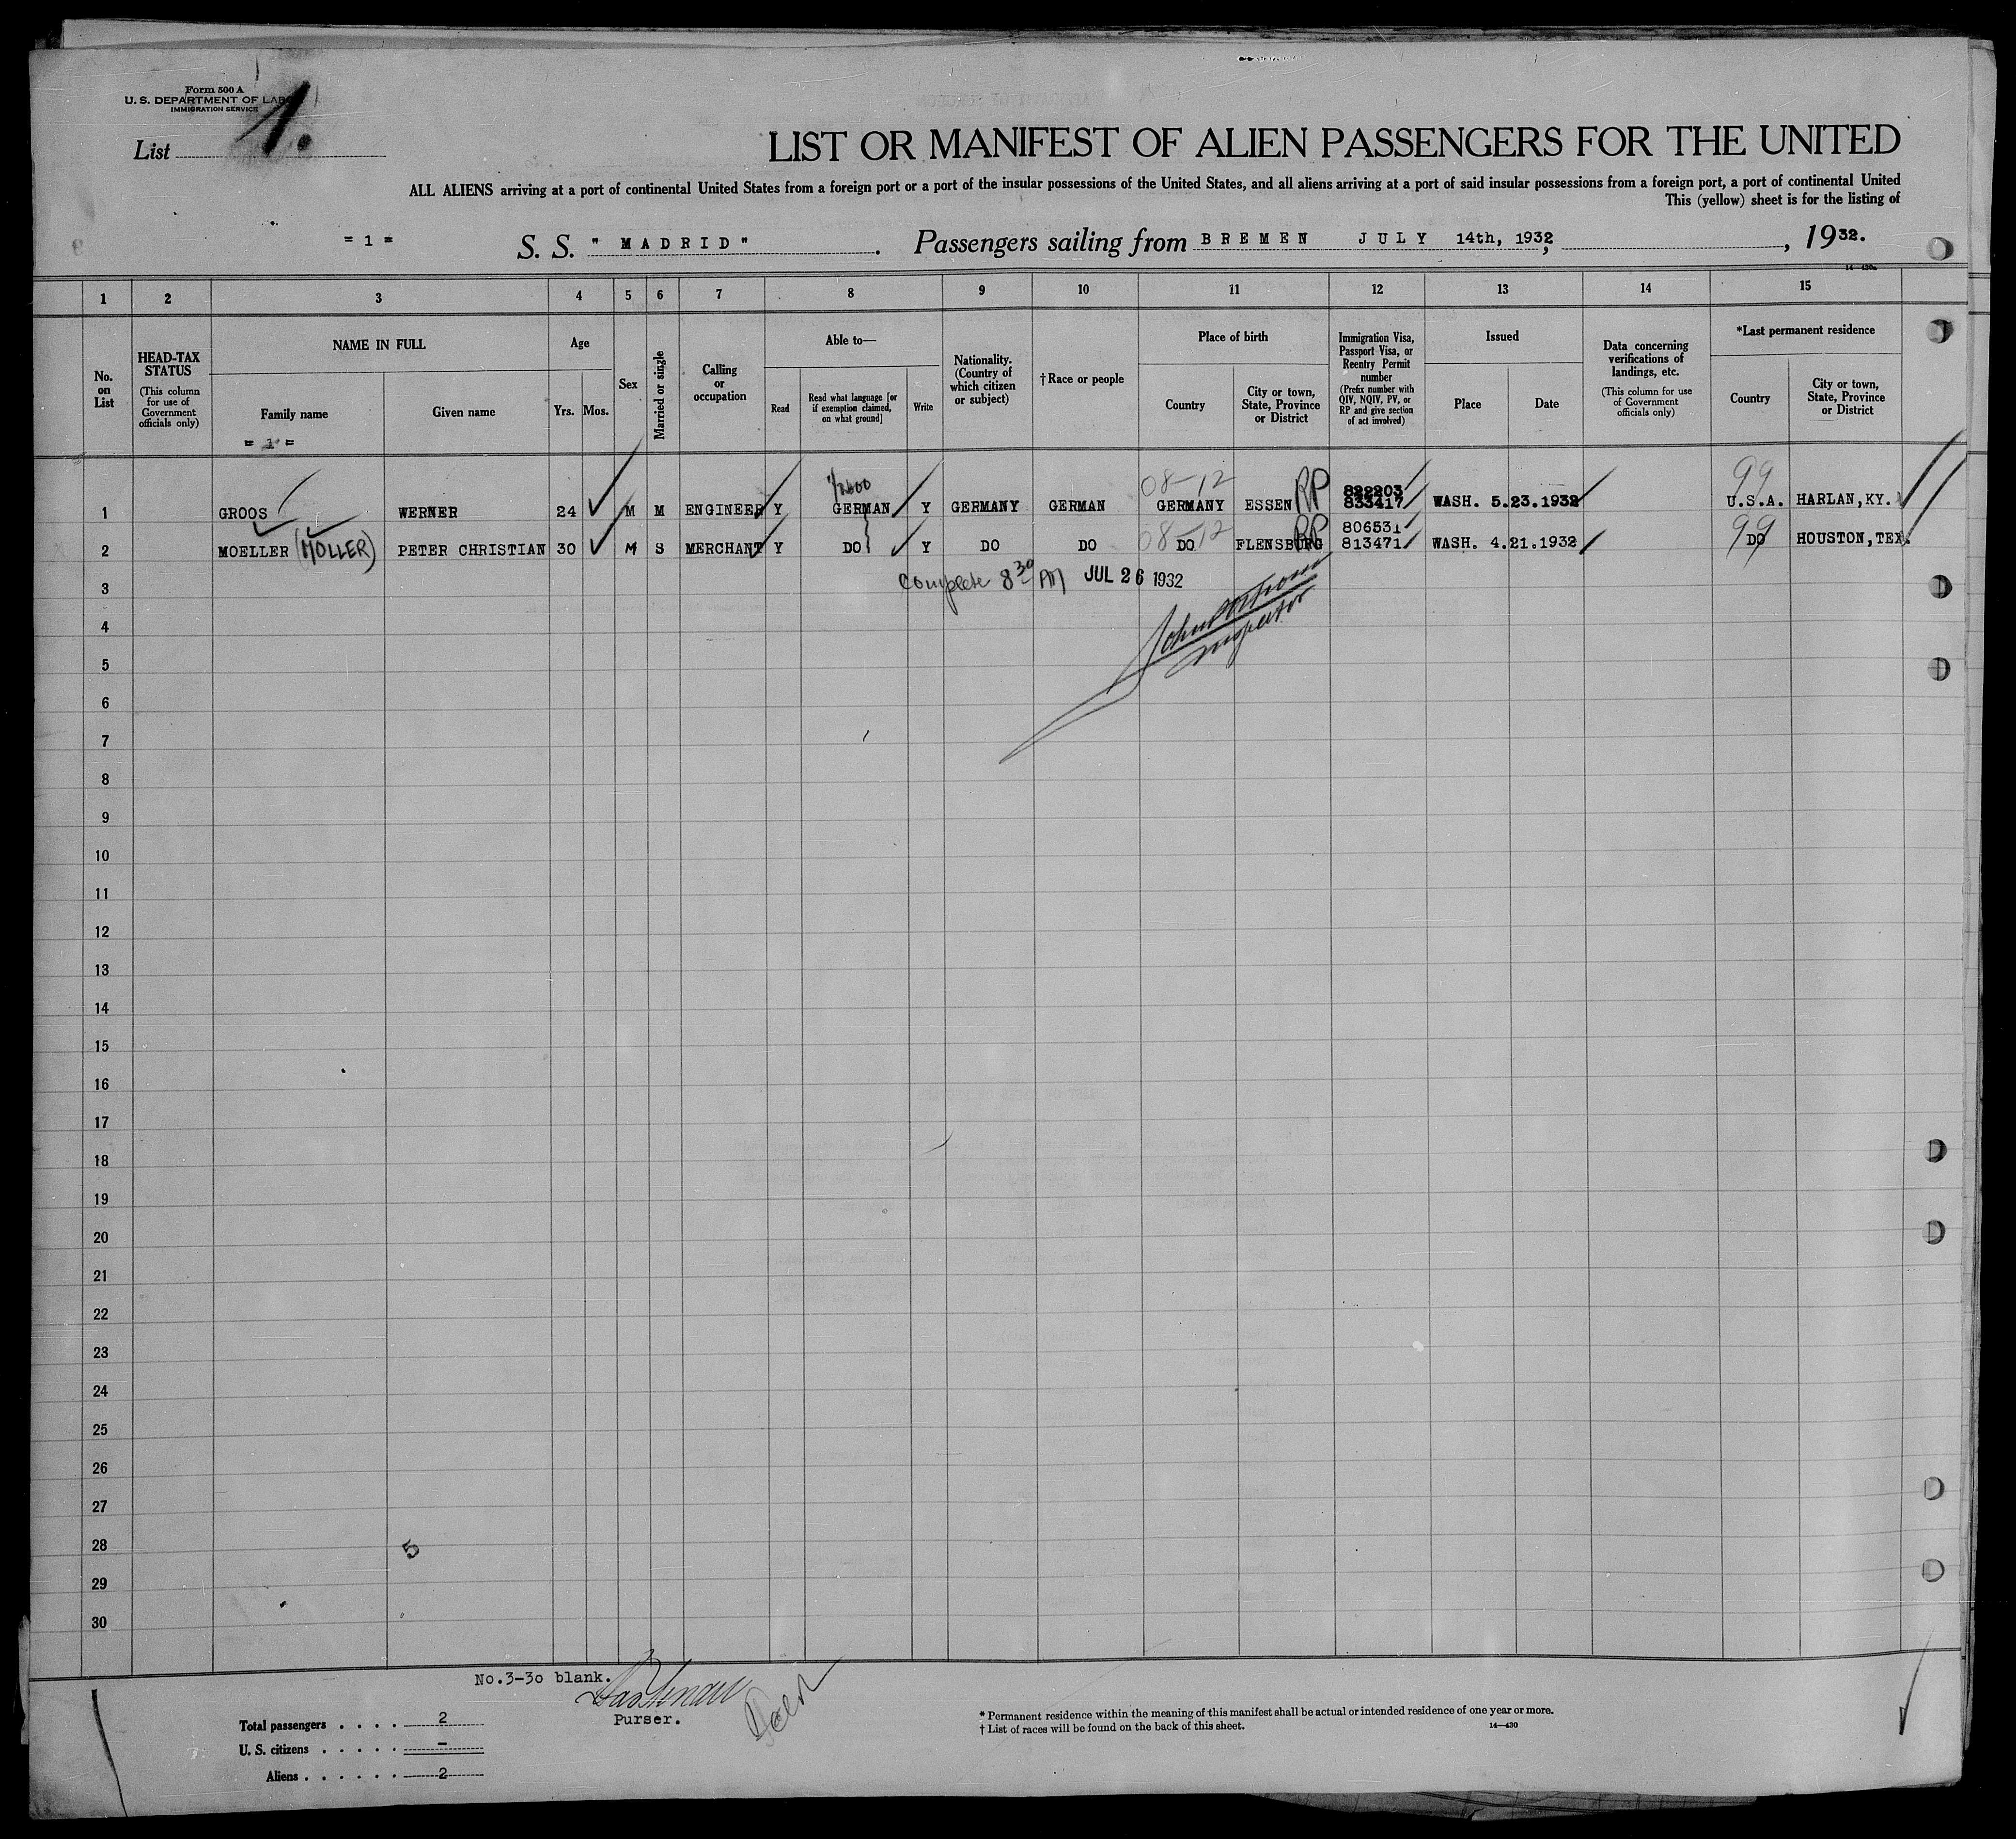 Form 500 A
U. S. DEPARTMENT OF LABOR
IMMIGRATION SERVICE
List 1.
LIST OR MANIFEST OF ALIEN PASSENGERS FOR THE UNITED
ALL ALIENS arriving at a port of continental United States from a foreign port or a port of the insular possessions of the United States, and all aliens arriving at a port of said insular possessions from a foreign port, a port of continental United
This (yellow) sheet is for the listing of
= 1 = S. S. " MADRID ". Passengers sailing from BREMEN JULY 14th, 1932, , 1932.
14—430a
1 2 3 4 5 6 7 8 9 10 11 12 13 14 15
No. on List
HEAD-TAX STATUS
(This column for use of Government officials only)
NAME IN FULL
Family name
= 1 =
Given name
Age
Yrs. Mos.
Sex
Married or single
Calling or occupation
Able to—
Read
Read what language [or if exemption claimed, on what ground]
Write
Nationality. (Country of which citizen or subject)
† Race or people
Place of birth
Country
City or town, State, Province or District
Immigration Visa, Passport Visa, or Reentry Permit number
(Prefix number with QIV, NQIV, PV, or RP and give section of act involved)
Issued
Place
Date
Data concerning verifications of landings, etc.
(This column for use of Government officials only)
*Last permanent residence
Country
City or town, State, Province or District
08-12 RP 822203 99
1 GROOS WERNER 24 M M ENGINEER Y GERMAN Y GERMANY GERMAN GERMANY ESSEN 833417 WASH. 5.23.1932 U.S.A. HARLAN, KY.
08-12 RP 806531 99
2 MOELLER (MOLLER) PETER CHRISTIAN 30 M S MERCHANT Y DO Y DO DO DO FLENSBURG 813471 WASH. 4.21.1932 DO HOUSTON, TEX.
3 Complete 8 30 AM JUL 26 1932
4
5 Inspector
6
7
8
9
10
11
12
13
14
15
16
17
18
19
20
21
22
23
24
25
26
27
28 5
29
30
No.3-30 blank.
Purser.
Total passengers . . . . 2
U. S. citizens . . . . . –
Aliens . . . . . . 2
* Permanent residence within the meaning of this manifest shall be actual or intended residence of one year or more.
† List of races will be found on the back of this sheet. 14—430